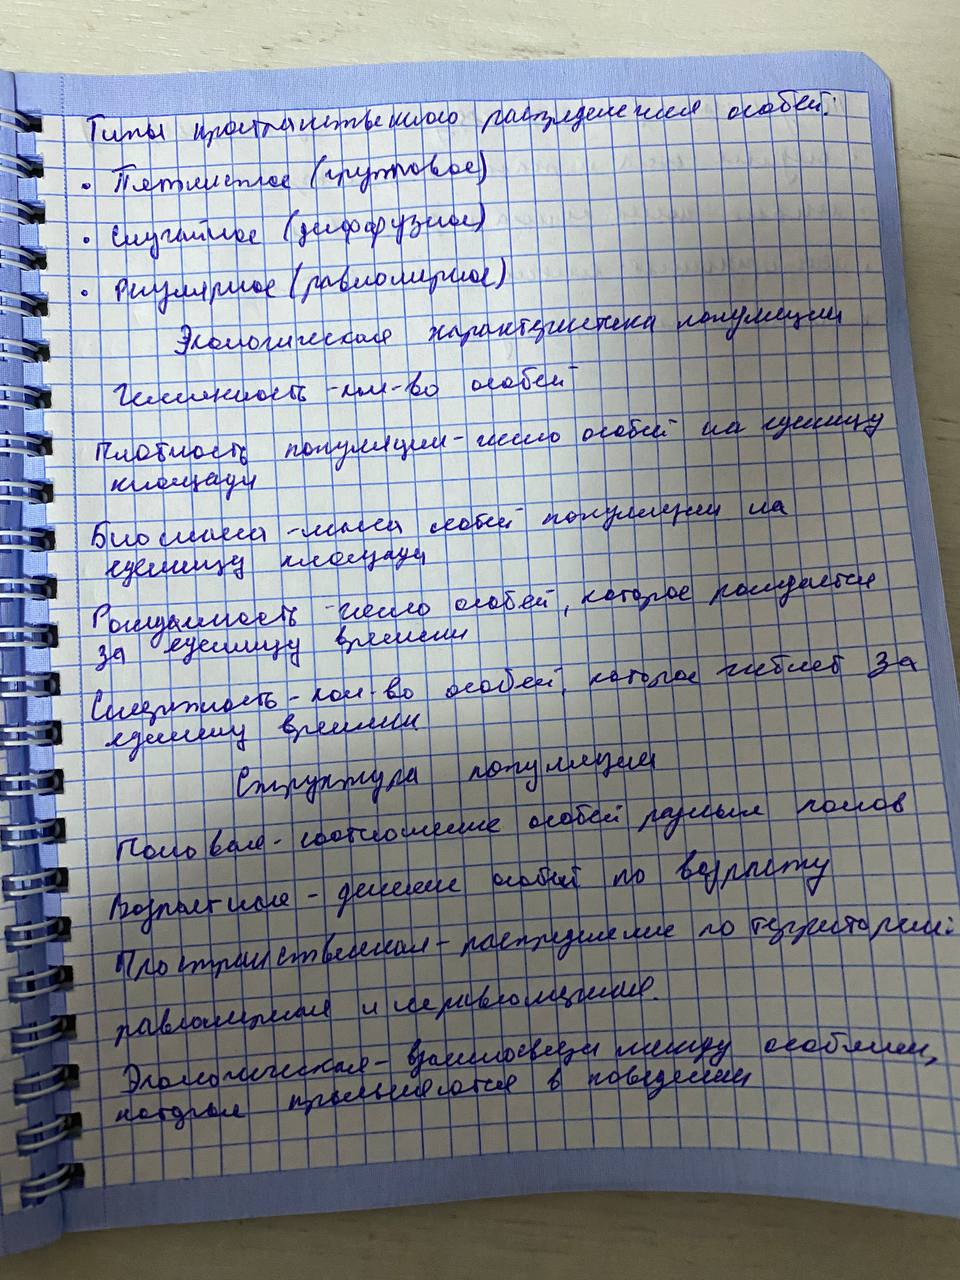 Типы пространственного распределения особей:
• Пятнистое (групповое)
• Случайное (диффузное)
• Регулярное (равномерное)
Экологическая характеристика популяции
Численность - кол-во особей
Плотность популяции - число особей на единицу
площади
Биомасса - масса особей популяции на
единицу площади
Рождаемость - число особей, которое рождается
за единицу времени
Смертность - кол-во особей, которое гибнет за
единицу времени
Структура популяции
Половая - соотношение особей разных полов
Возрастная - деление особей по возрасту
Пространственная - распределение по территории:
равномерная и неравномерная.
Экологическая - взаимосвязи между особями,
которая проявляются в поведении